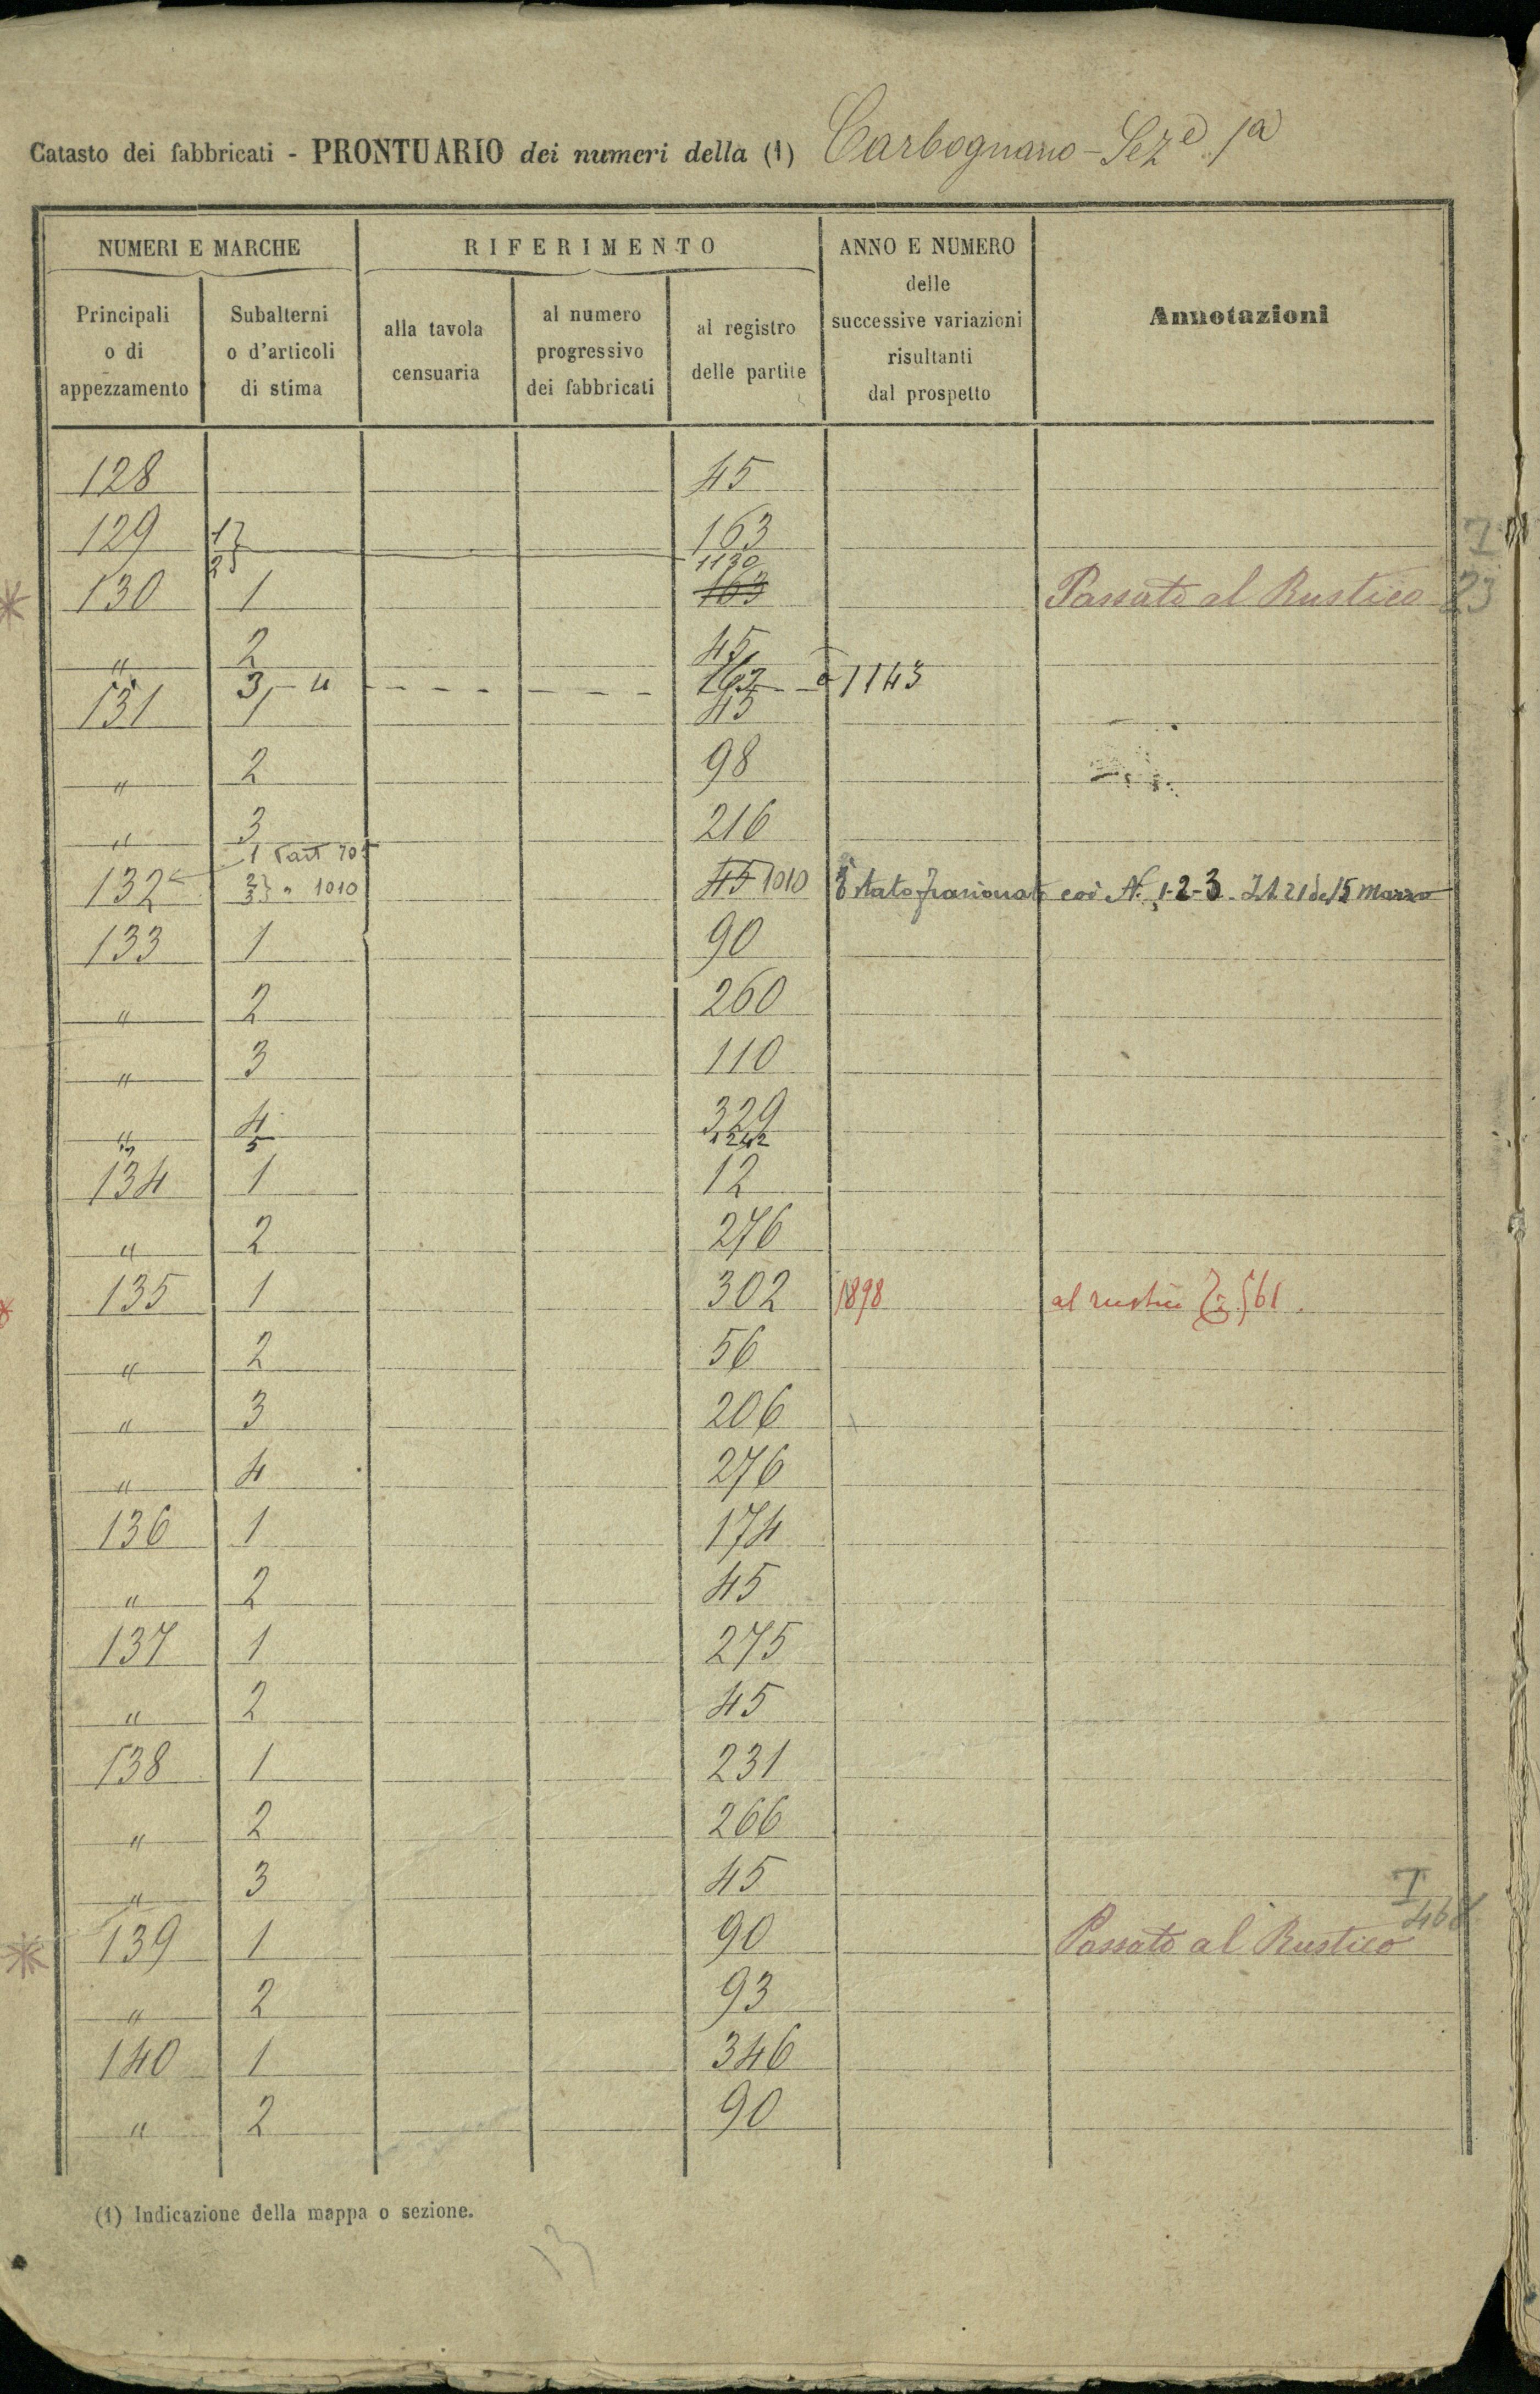 Catasto dei fabbricati - PRONTUARIO dei numeri della (1) Carbognano - Sez.e 1a
NUMERI E MARCHE
RIFERIMENTO
ANNO E NUMERO
delle
successive variazioni
risultanti
dal prospetto
Annotazioni
Principali
o di
appezzamento
Subalterni
o d'articoli
di stima
alla tavola
censuaria
al numero
progressivo
dei fabbricati
al registro
delle partite
128 45
129 163
1130
130 1 163 Passato al Rustico 23
" 2 45
3 163 1143
131 1 45
" 2 98
" 3 216
1 Part 705
132 2 3 " 1010 45 1010 È stato frazionato coi N. 1-2-3 15 Marzo
133 1 90
" 2 260
" 3 110
" 4 329
" 5 1242
134 1 12
" 2 276
135 1 302 1898 al rustico 561
" 2 56
" 3 206
" 4 276
136 1 174
" 2 45
137 1 275
" 2 45
138 1 231
" 2 266
" 3 45
I
139 1 90 Passato al Rustico
" 2 93
140 1 346
" 2 90
(1) Indicazione della mappa o sezione.
13